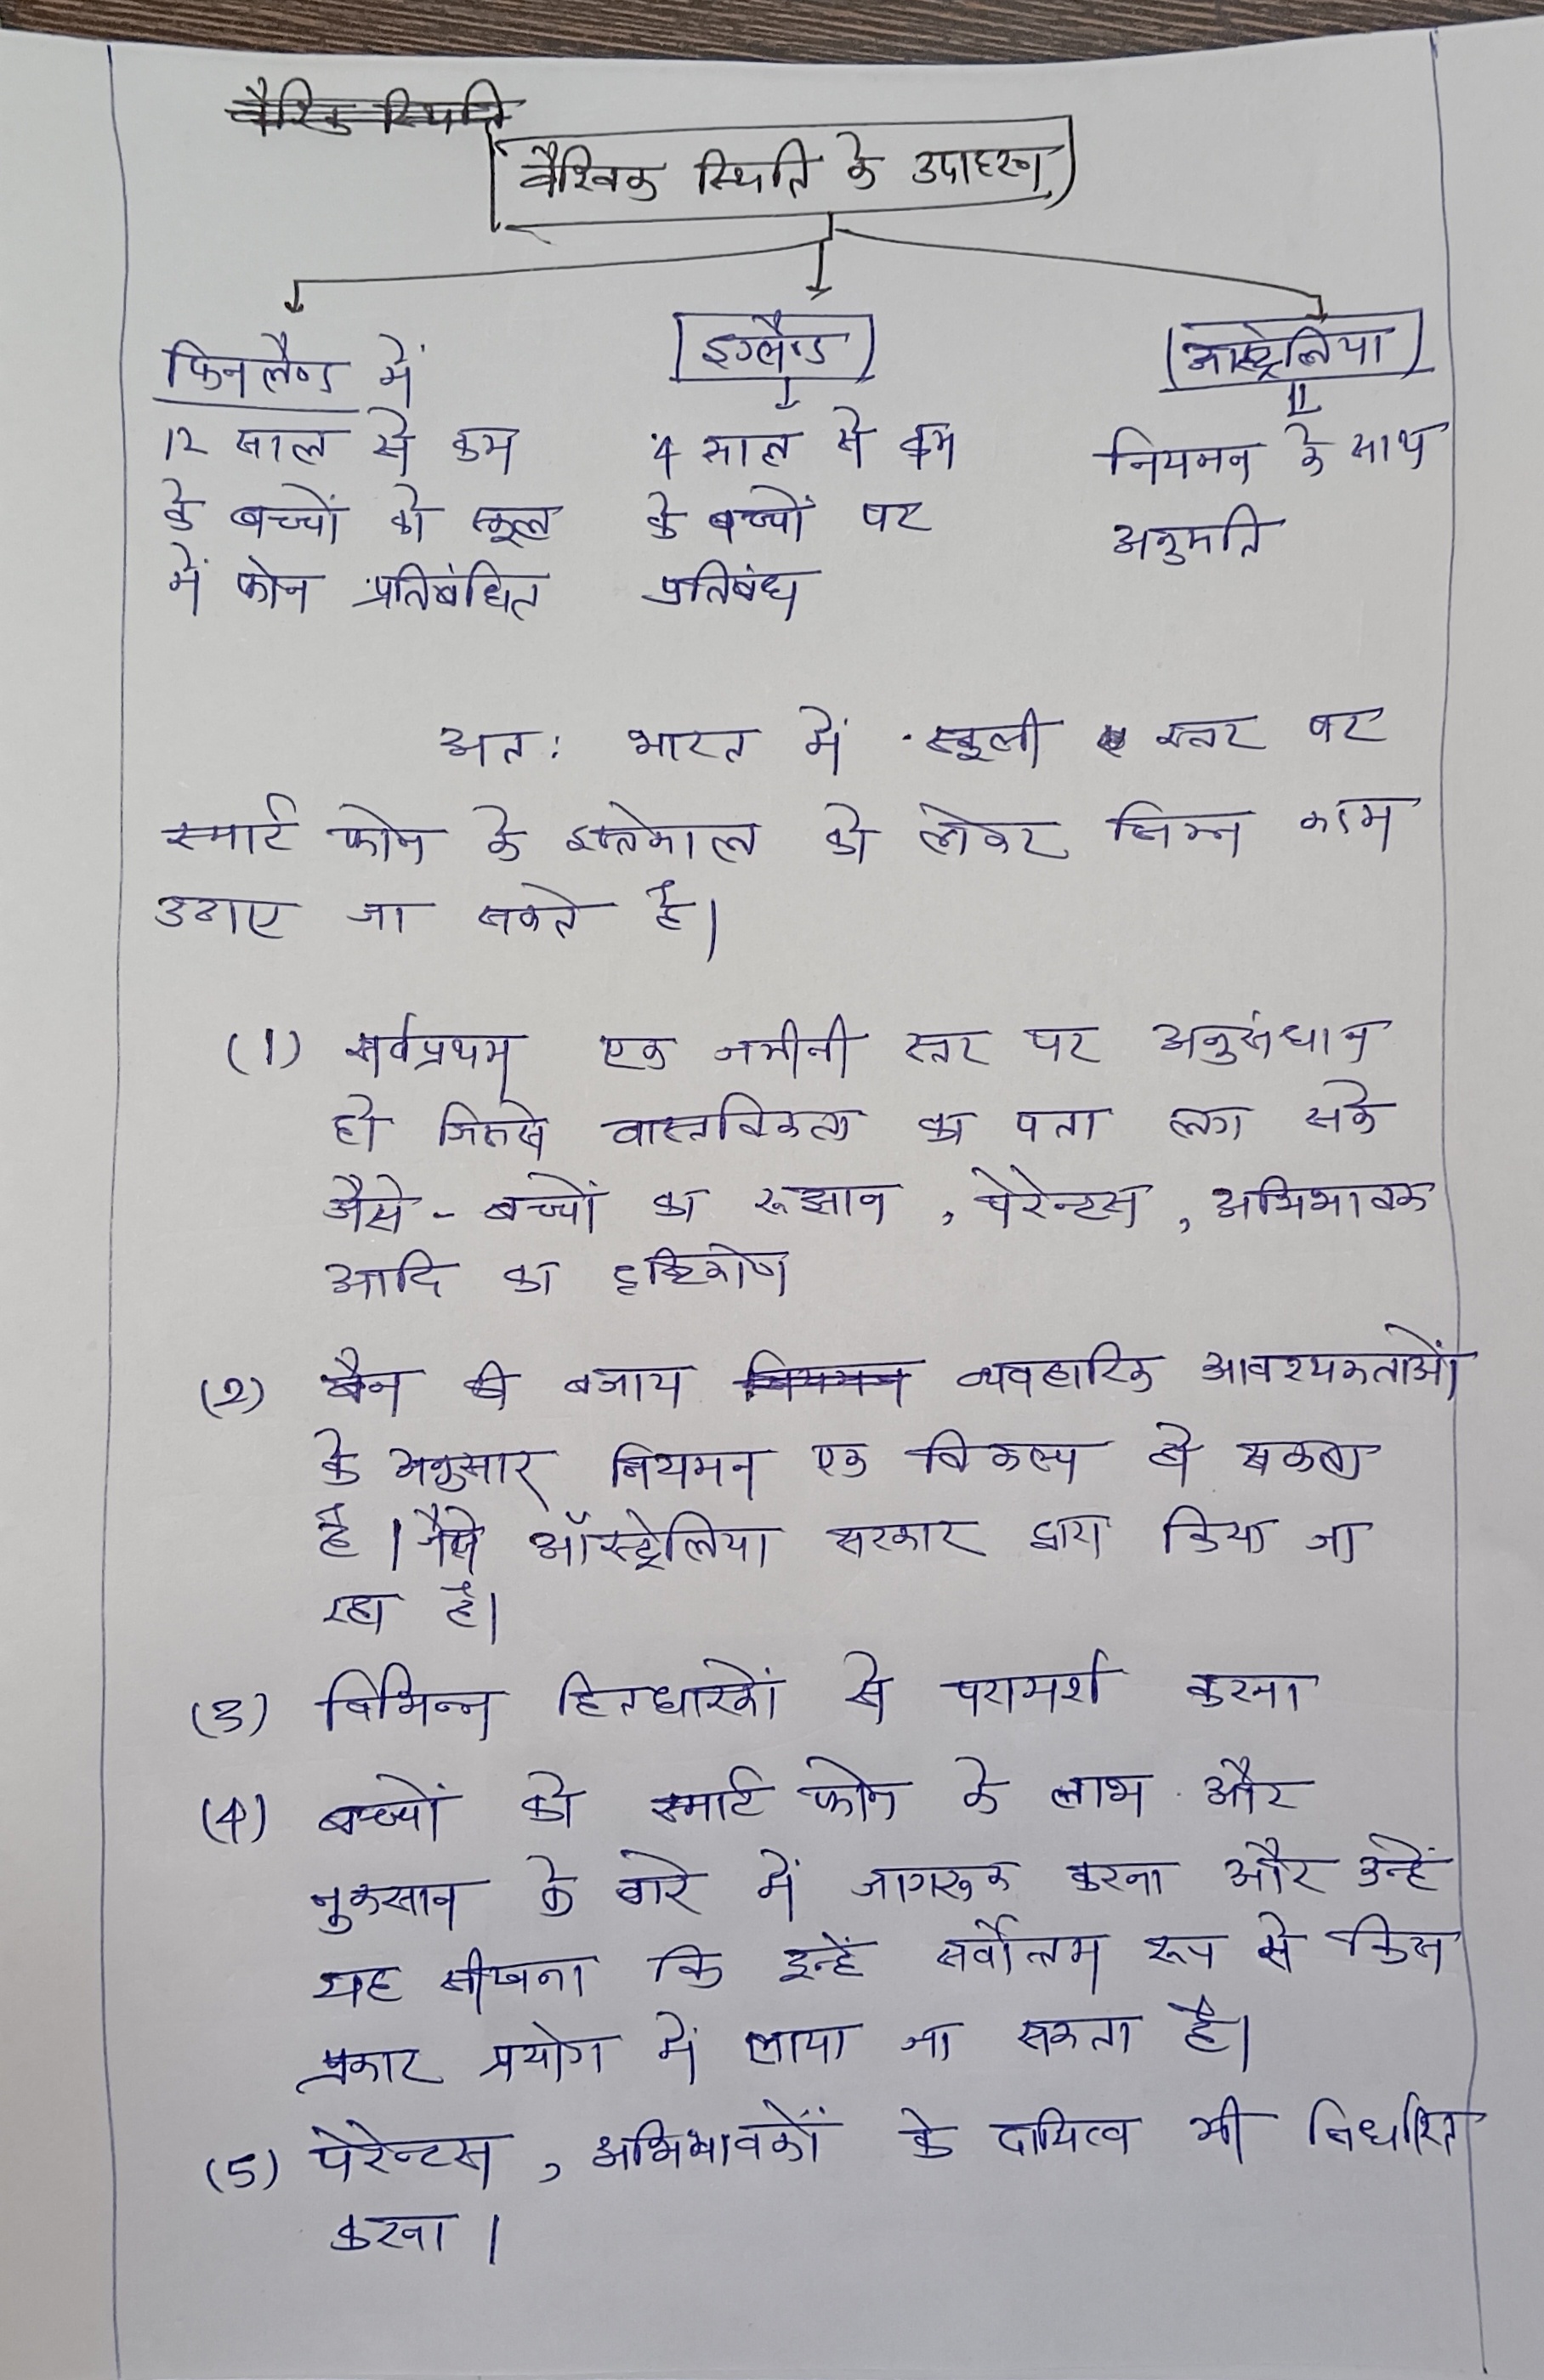 वैश्विक स्थिति
वैश्विक स्थिति के उदाहरण
फिनलैण्ड में
12 साल से कम
के बच्चों को स्कूल
में फोन प्रतिबंधित
इंग्लैण्ड
4 साल से कम
के बच्चों पर
प्रतिबंध
आस्ट्रेलिया
नियमन के साथ
अनुमति
अतः भारत में स्कूली स्तर पर
स्मार्ट फोन के इस्तेमाल को लेकर निम्न काम
उठाए जा सकते है।
(1) सर्वप्रथम एक जमीनी स्तर पर अनुसंधान
हो जिससे वास्तविकता का पता लग सके
जैसे - बच्चों का रूझान, पेरेन्टस, अभिभावक
आदि का दृष्टिकोण
(2) बैन की बजाय नियमन व्यवहारिक आवश्यकताओं
के अनुसार नियमन एक विकल्प हो सकता
है। जैसे ऑस्ट्रेलिया सरकार द्वारा किया जा
रहा है।
(3) विभिन्न हितधारकों से परामर्श करना
(4) बच्चों को स्मार्ट फोन के लाभ और
नुकसान के बारे में जागरुक करना और उन्हें
यह सीखना कि इन्हें सर्वोत्तम रूप से किस
प्रकार प्रयोग में लाया जा सकता है।
(5) पेरेन्टस, अभिभावकों के दायित्व भी निर्धारित
करना।